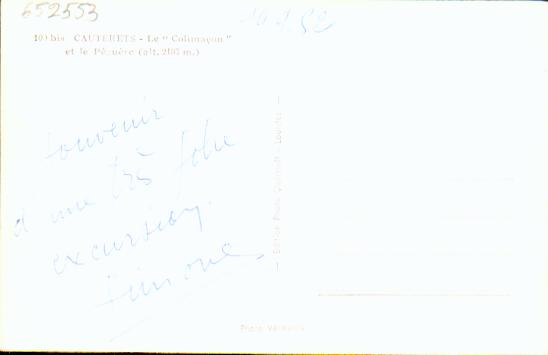 652553
10.9.52
100 bis CAUTERETS - Le "Colimaçon"
et le Péguère (alt. 2187 m.)
souvenir
d'une très jolie
excursion.
Simone
Edition Photo Lourdes
Photo Véritable